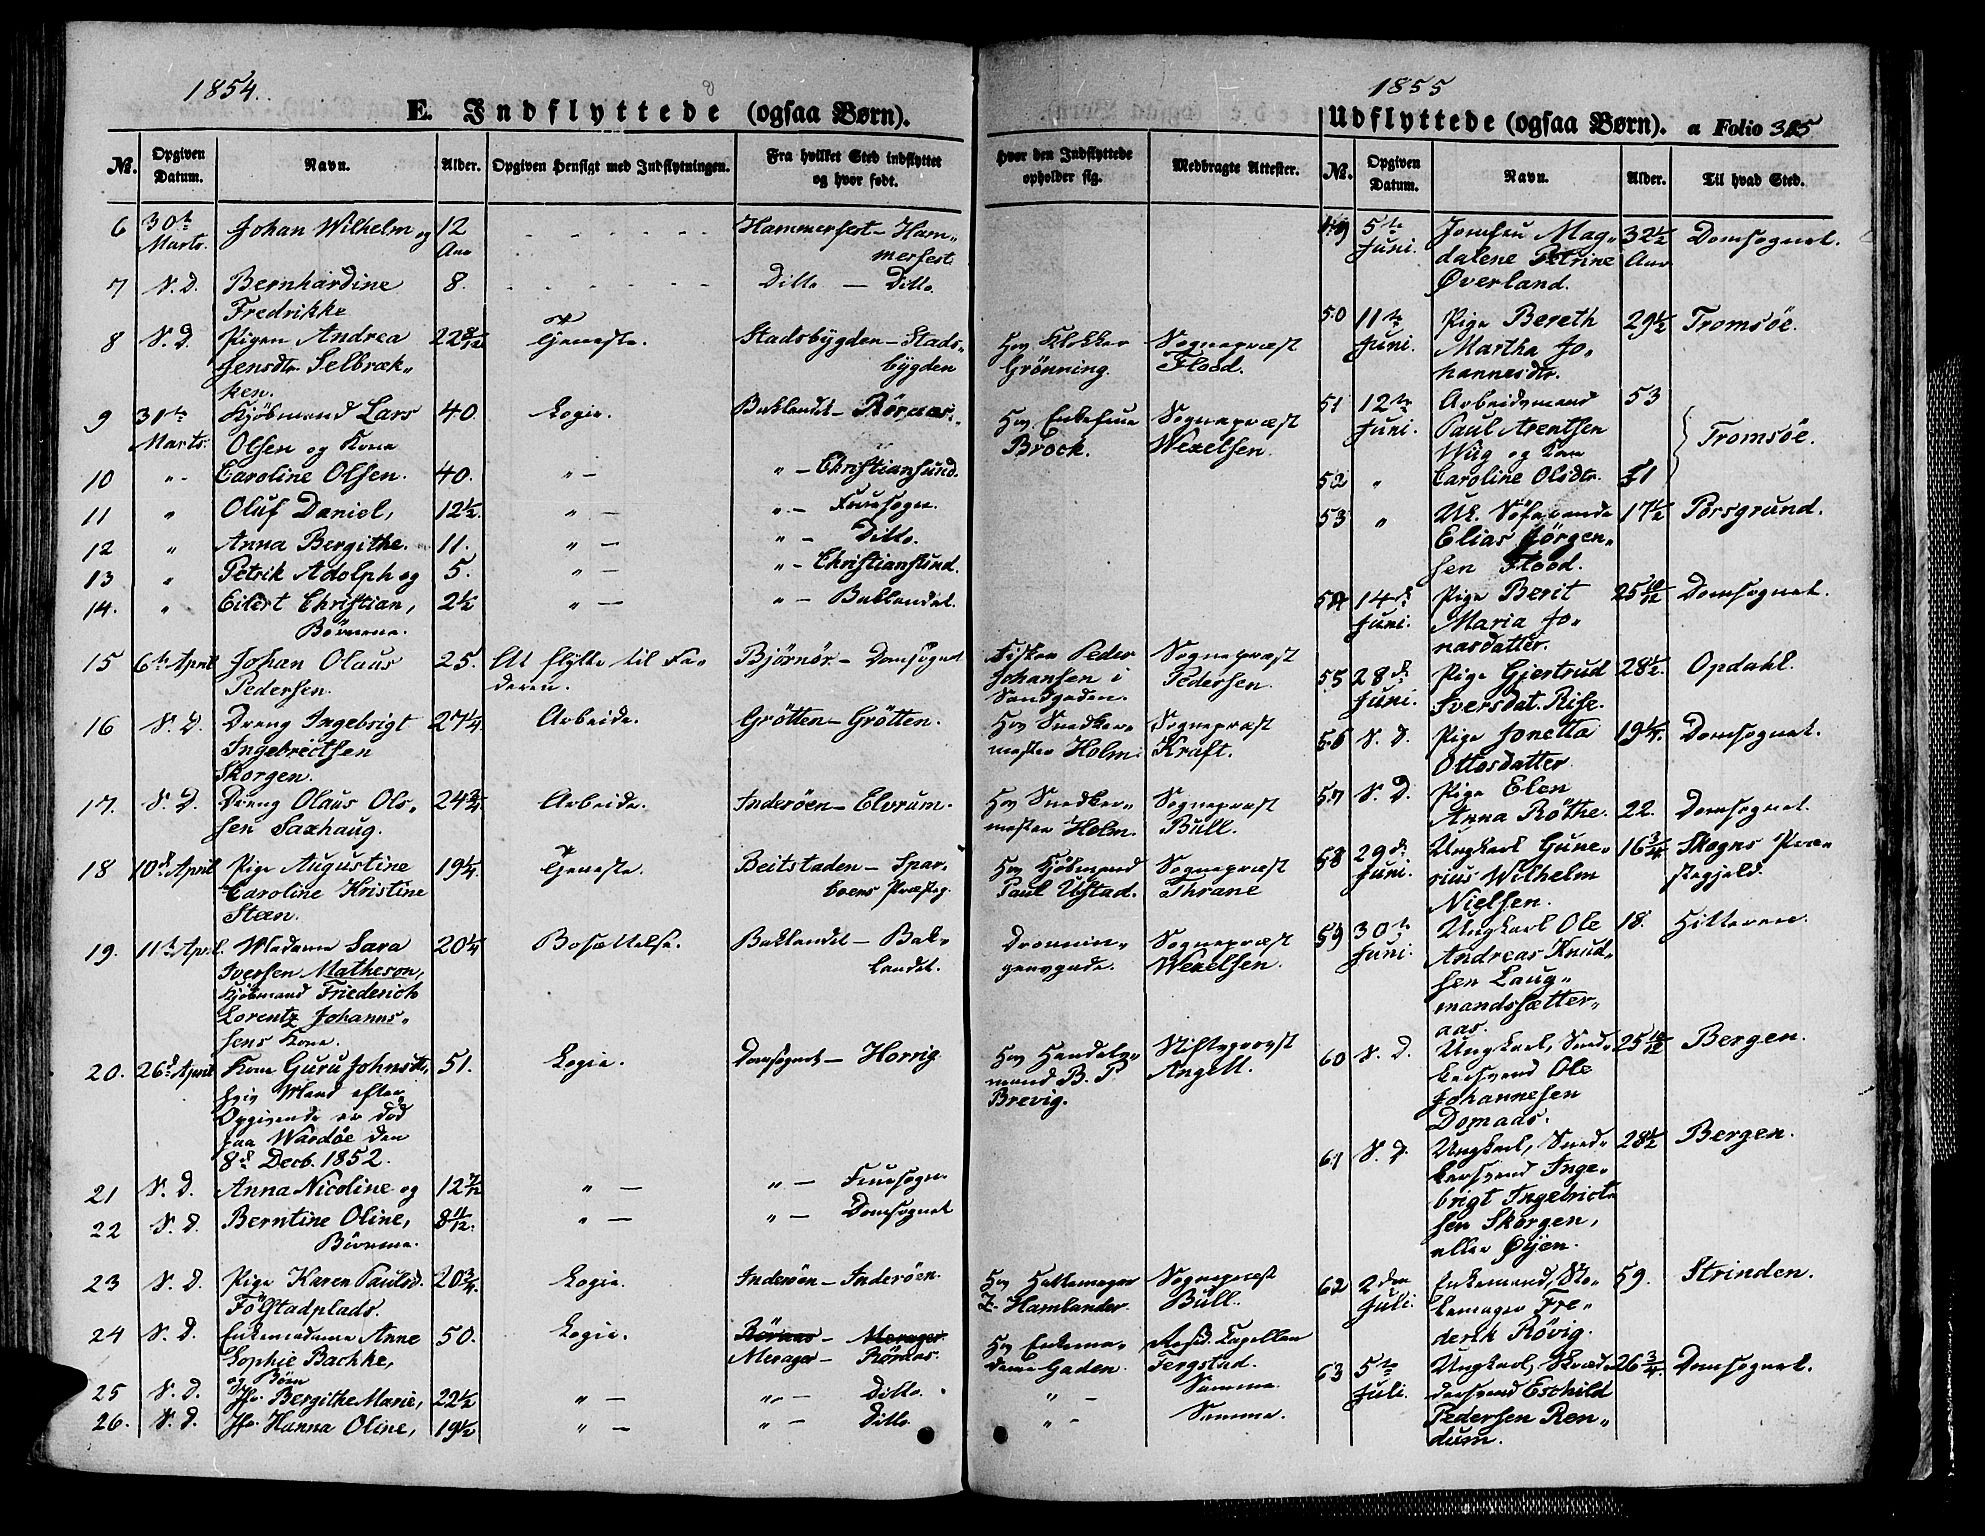 1854.
E. Indflyttede (ogsaa Børn).
No. Opgiven Datum. Navn. Alder. Opgiven Hensigt med Indflytningen. Fra hvilket Sted indflyttet og hvor født. Hvor den Indflyttede opholder sig. Medbragte Attester.
6 30te Marts. Johan Wilhelm og 12 Aar Hammerfest - Hammerfest
7 S. D. Bernhardine Fredrikke 8. Ditto - Ditto.
8 S. D. Pigen Andrea Jensdtr. Selbrækken. 22 8/12 Tjeneste. Stadsbygden - Stadsbygden Hos Klokker Grönning. Sognepræst Flood.
9 31te Marts. Kjöbmand Lars Olsen og Kone 40. Logie. Baklandet - Röraas. Hos Enkefrue Brock. Sognepræst Wexelsen.
10 " Caroline Olsen. 40. " - " - Christiansund.
11 " Oluf Daniel, 12½. " - " - Fruesogn.
12 " Anna Bergithe. 11. " - " - Ditto.
13 " Petrik Adolph og 5. " - " - Christiansund.
14. " Eilert Christian, Börnene. 2½ " - " - Baklandet.
15 6te April Johan Olaus Pedersen. 25. At flytte til Faderen. Bjørnör - Domsognet Fisker Peder Johansen i Sandgaden. Sognepræst Pedersen.
16 S. D. Dreng Ingebrigt Ingebrictsen Skorgen. 27¼. Arbeide. Grötten - Grötten. Hos Snedkermester Holm. Sognepræst Kraft.
17. S. D. Dreng Olaus Olsen Saxhaug. 24¾ Arbeide. Inderöen - Elvrum. Hos Snedkermester Holm. Sognepræst Bull.
18 10de April Pige Augustine Caroline Kristine Steen. 19¼. Tjeneste. Beitstaden - Sparboens Præstegj. Hos Kjöbmand Paul Ugstad. Sognepræst Thrane
19. 11te April. Madame Sara Iversen Matheson, Kjöbmand Friederich Lorentz Johannsens Kone. 20¼ Bosættelse. Baklandet - Baklandet. Dronningensgade. Sognepræst Wexelsen.
20. 26de April Kone Guru Johnsdtr, hvis Mand efter Opgivende er död paa Wardöe den 8de Decb. 1852. 51. Logie. Domsognet - Horrig Hos Handelsmand B. P. Brevig. Stiftsprovst Angell.
21 S. D. Anna Nicoline og 12 7/12 " - " - Fruesogn.
22 S. D. Berntine Oline, Börnene. 8 11/12. " - " - Domsognet
23 S. D. Pige Karen Paulsd. Fölstadplads. 20¾. Logie. Inderöen - Inderöen. Hos Hattemager Z. Hamlander. Sognepræst Bull.
24 S. D. Enkemadame Anne Sophie Bachke, og Börn 50. Logie. Röraas - Merager. Merager - Röraas. Hos Enkemadame Gaden. Resid. Capellan Fergstad.
25 S. D. Jfr. Bergithe Marie, 22½ " - " - Ditto. " - Samme.
26. S. D. Jfr. Hanna Oline, 19½ " - " - Ditto. " - Samme.
1855
Udflyttede (ogsaa Børn). a Folio 325
No. Opgiven Datum. Navn. Alder. Til hvad Sted.
49 5te Juni. Jomfru Magdalene Petrine Øverland. 32½ Aar Domsognet.
50 11te Juni. Pige Bereth Martha Johannesdtr. 29½ Tromsöe.
51 12te Juni. Arbeidsmand Paul Arentsen Wiig og Kone 53 Tromsöe.
52 " Caroline Olsdtr. 51
53 " Uk. Söfarende Elias Jörgensen Flood. 17½ Porsgrund.
54 14de Juni. Pige Berit Maria Jonasdatter. 25 10/12 Domsognet.
55 28de Juni. Pige Gjertrud Sversdat. Rise. 28½. Opdahl.
56 S. D. Pige Jonetta Ottosdatter 19¼. Domsognet.
57 S. D. Pige Elen Anna Röthe. 22. Domsognet.
58 29de Juni. Ungkarl Gunerius Wilhelm Nielsen. 16¾ Skogns Præstegjeld.
59 30te Juni. Ungkarl Ole Andreas Knudsen Laugmandssætteraas. 18. Hitteren.
60 S. D. Ungkarl, Snedkersvend Ole Johannesen Domaas. 25 10/12 Bergen.
61 S. D. Ungkarl, Snedkersvend Ingebrigt Ingebrictsen Skorgen, eller Øyen. 28½ Bergen.
62 2den Juli. Enkemand, Skomager Frederik Rövig. 59. Strinden.
63 5te Juli. Ungkarl, Skrædersvend Eschild Pedersen Rondum. 26¾. Domsognet.